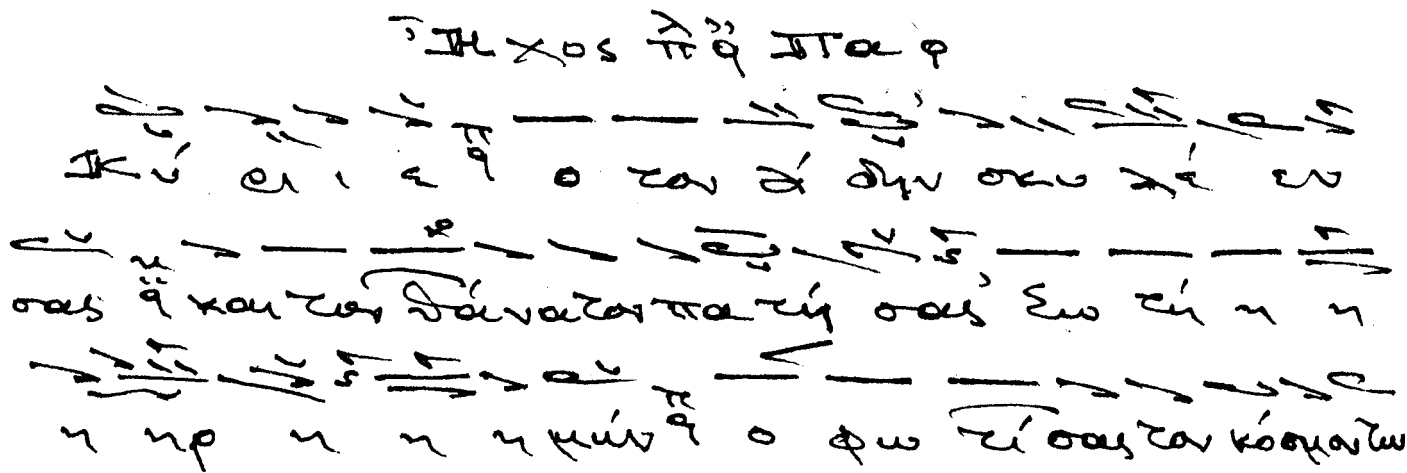 Ἦχος πλ ᾳ Πα φ
Κύ ρι ι ε ο τον ά δην σκυ λέ ευ
σας και τον θάνατον πα τή σας Σω τή η η
η ηρ η η η μών ο φω τί σας τον κόσμον των